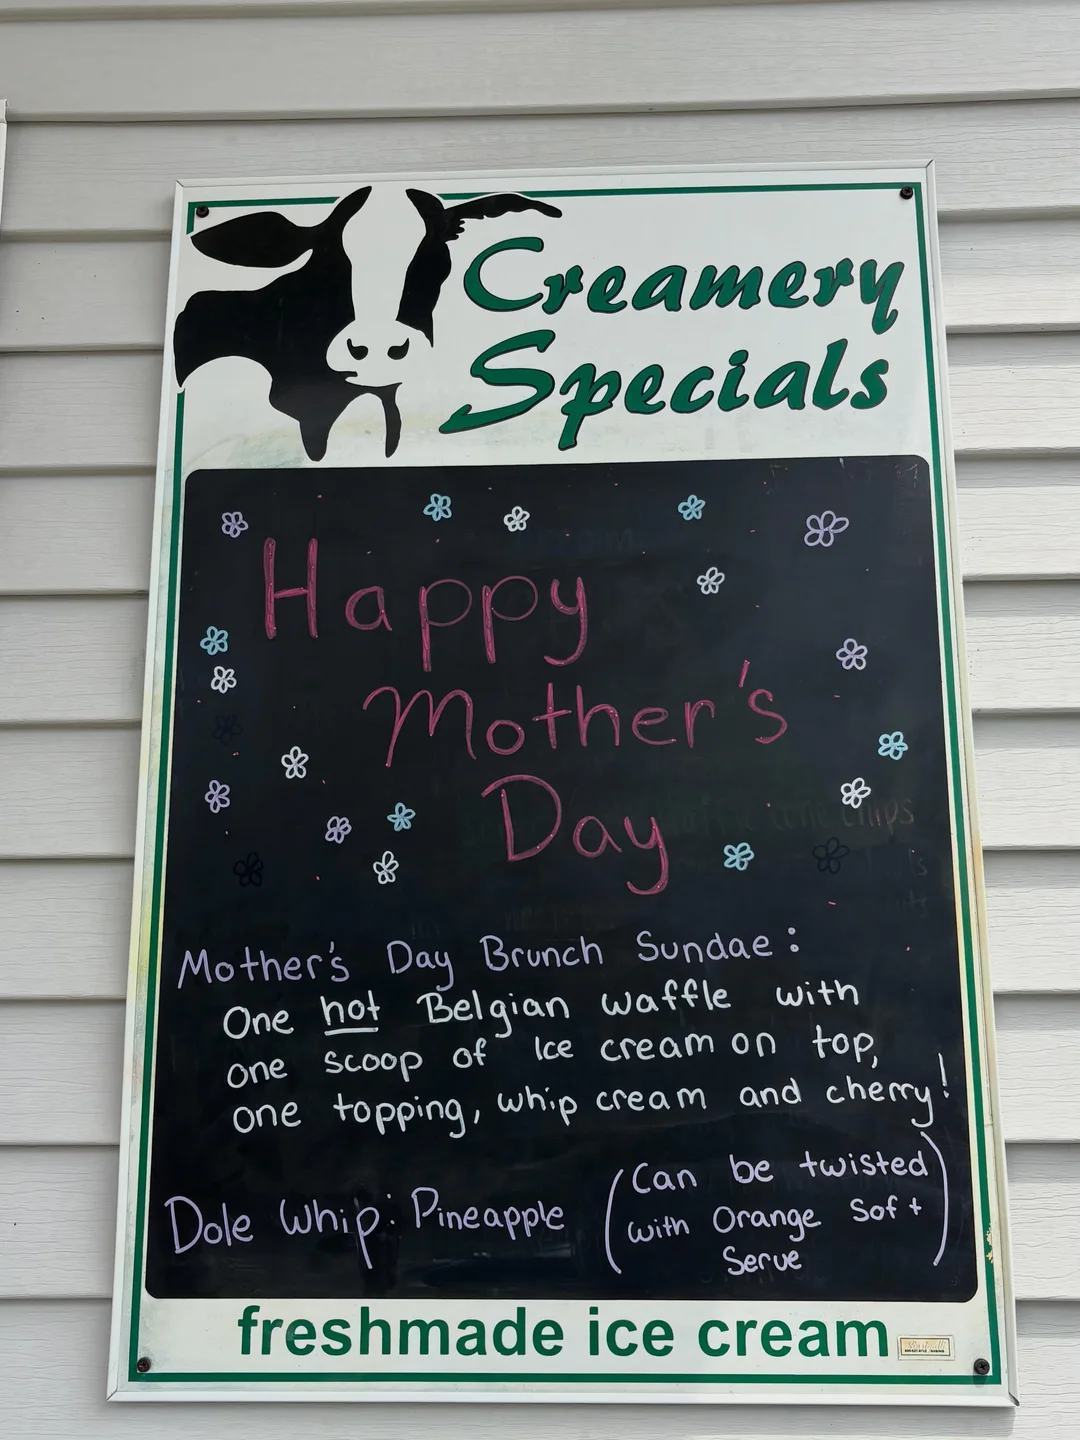 Creamery
Specials
Happy
Mother's
Day
Mother's Day Brunch Sundae:
One hot Belgian waffle with
one scoop of Ice cream on top,
one topping, whip cream and cherry!
Dole Whip: Pineapple
(Can be twisted
with Orange Soft
Serve)
freshmade ice cream